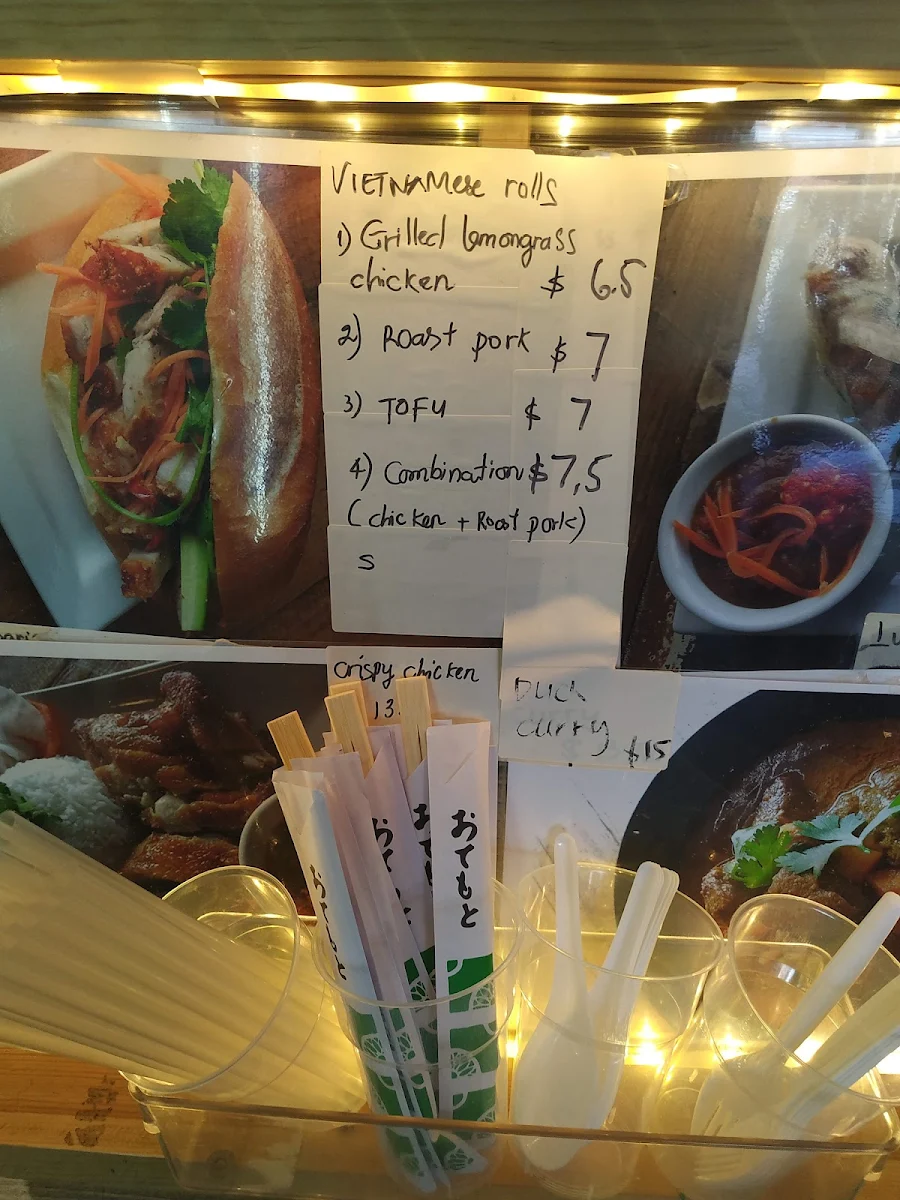 VIETNAMese rolls
1) Grilled lemongrass
chicken $ 6.5
2) Roast pork $ 7
3) TOFU $ 7
4) Combination $7,5
(chicken + Roast pork)
S
crispy chicken
13
Duck
curry
$15
おてもと
おてもと